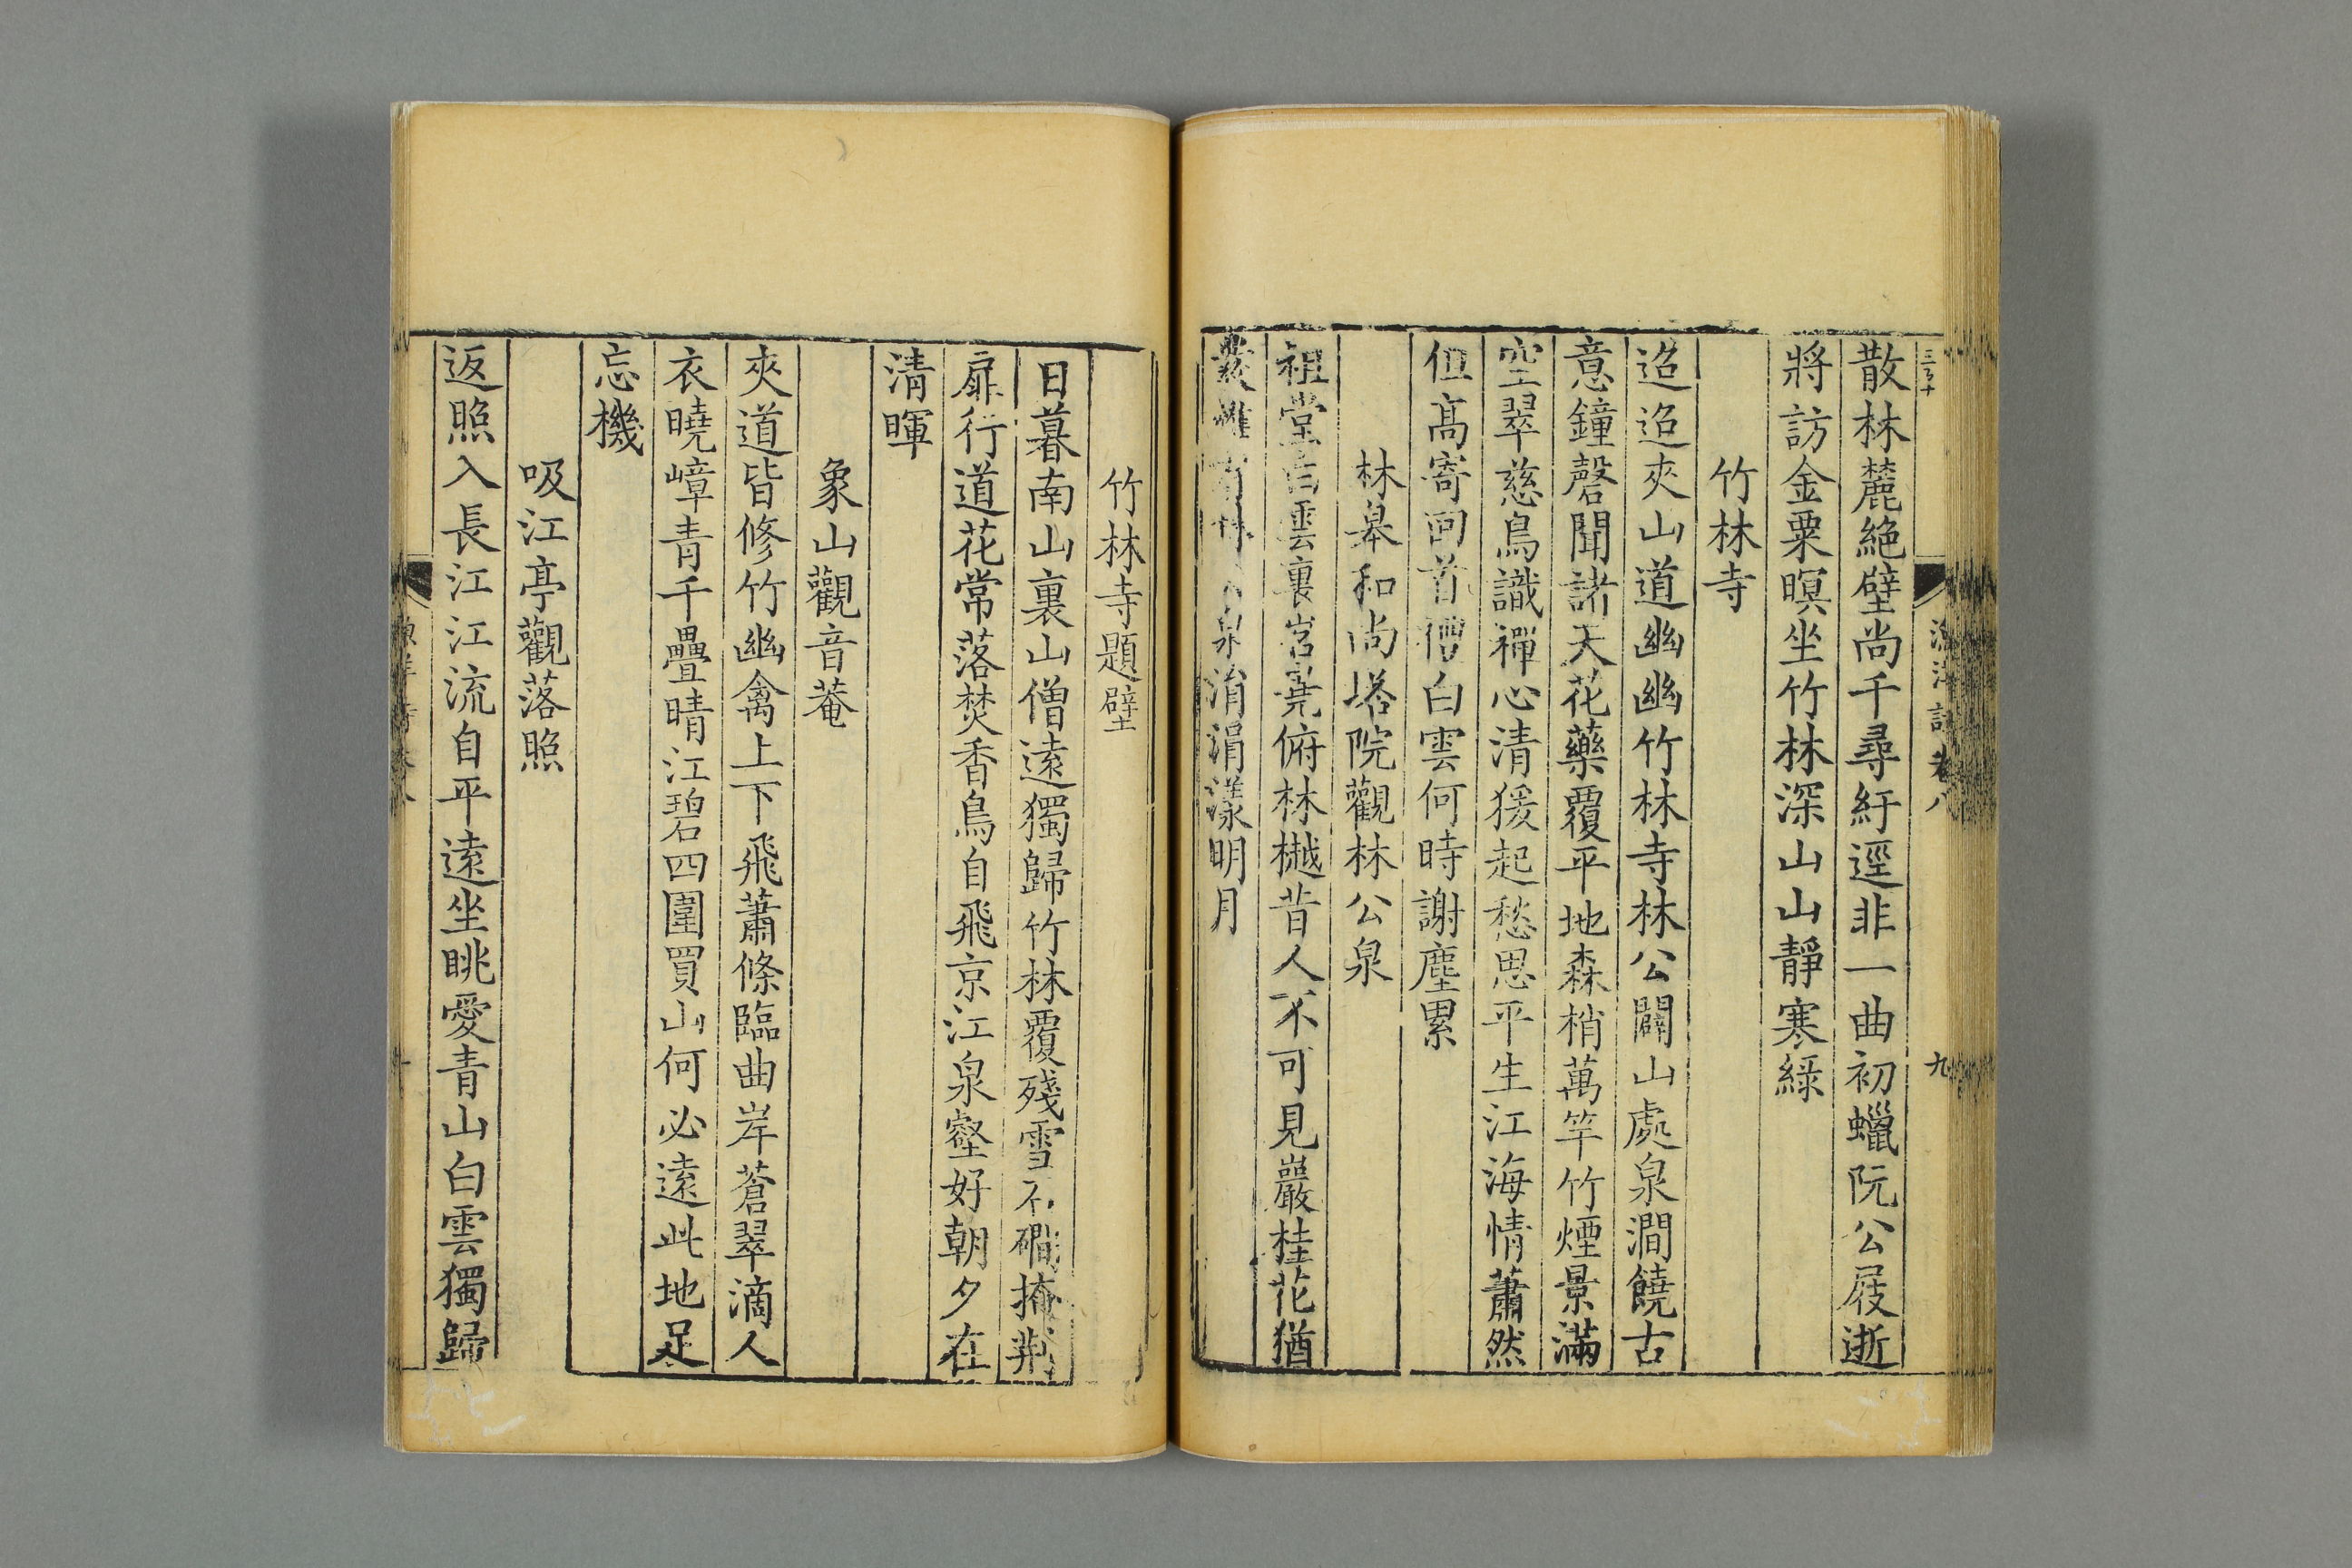 三百十
漁洋詩卷八
九
散林麓絶壁尚千尋紆逕非一曲初蠟阮公屐逝
將訪金粟暝坐竹林深山山靜寒綠
竹林寺
迢迢夾山道幽幽竹林寺林公闢山處泉澗饒古
意鐘磬聞諸天花藥覆平地森梢萬竿竹煙景滿
空翠慈鳥識禪心清猨起愁思平生江海情蕭然
但高寄回首禮白雲何時謝塵累
林皋和尚塔院觀林公泉
祖堂白雲裏岧嶤俯林樾昔人不可見巖桂花猶
發惟有林公泉涓涓漾明月
竹林寺題壁
日暮南山裏山僧遠獨歸竹林覆殘雪石磵掩荆
扉行道花常落焚香鳥自飛京江泉壑好朝夕在
清暉
象山觀音菴
夾道皆修竹幽禽上下飛蕭條臨曲岸蒼翠滴人
衣曉嶂青千疊晴江碧四圍買山何必遠此地足
忘機
吸江亭觀落照
返照入長江江流自平遠坐眺愛青山白雲獨歸
漁洋詩卷八